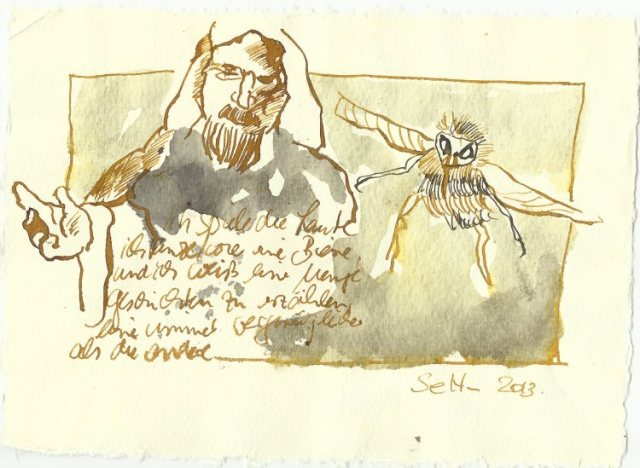 ich spiele die Laute
ich wie eine Biene,
und ich weiß eine Menge
Geschichten zu erzählen,
eine immer vergnüglicher
als die andere
2013.